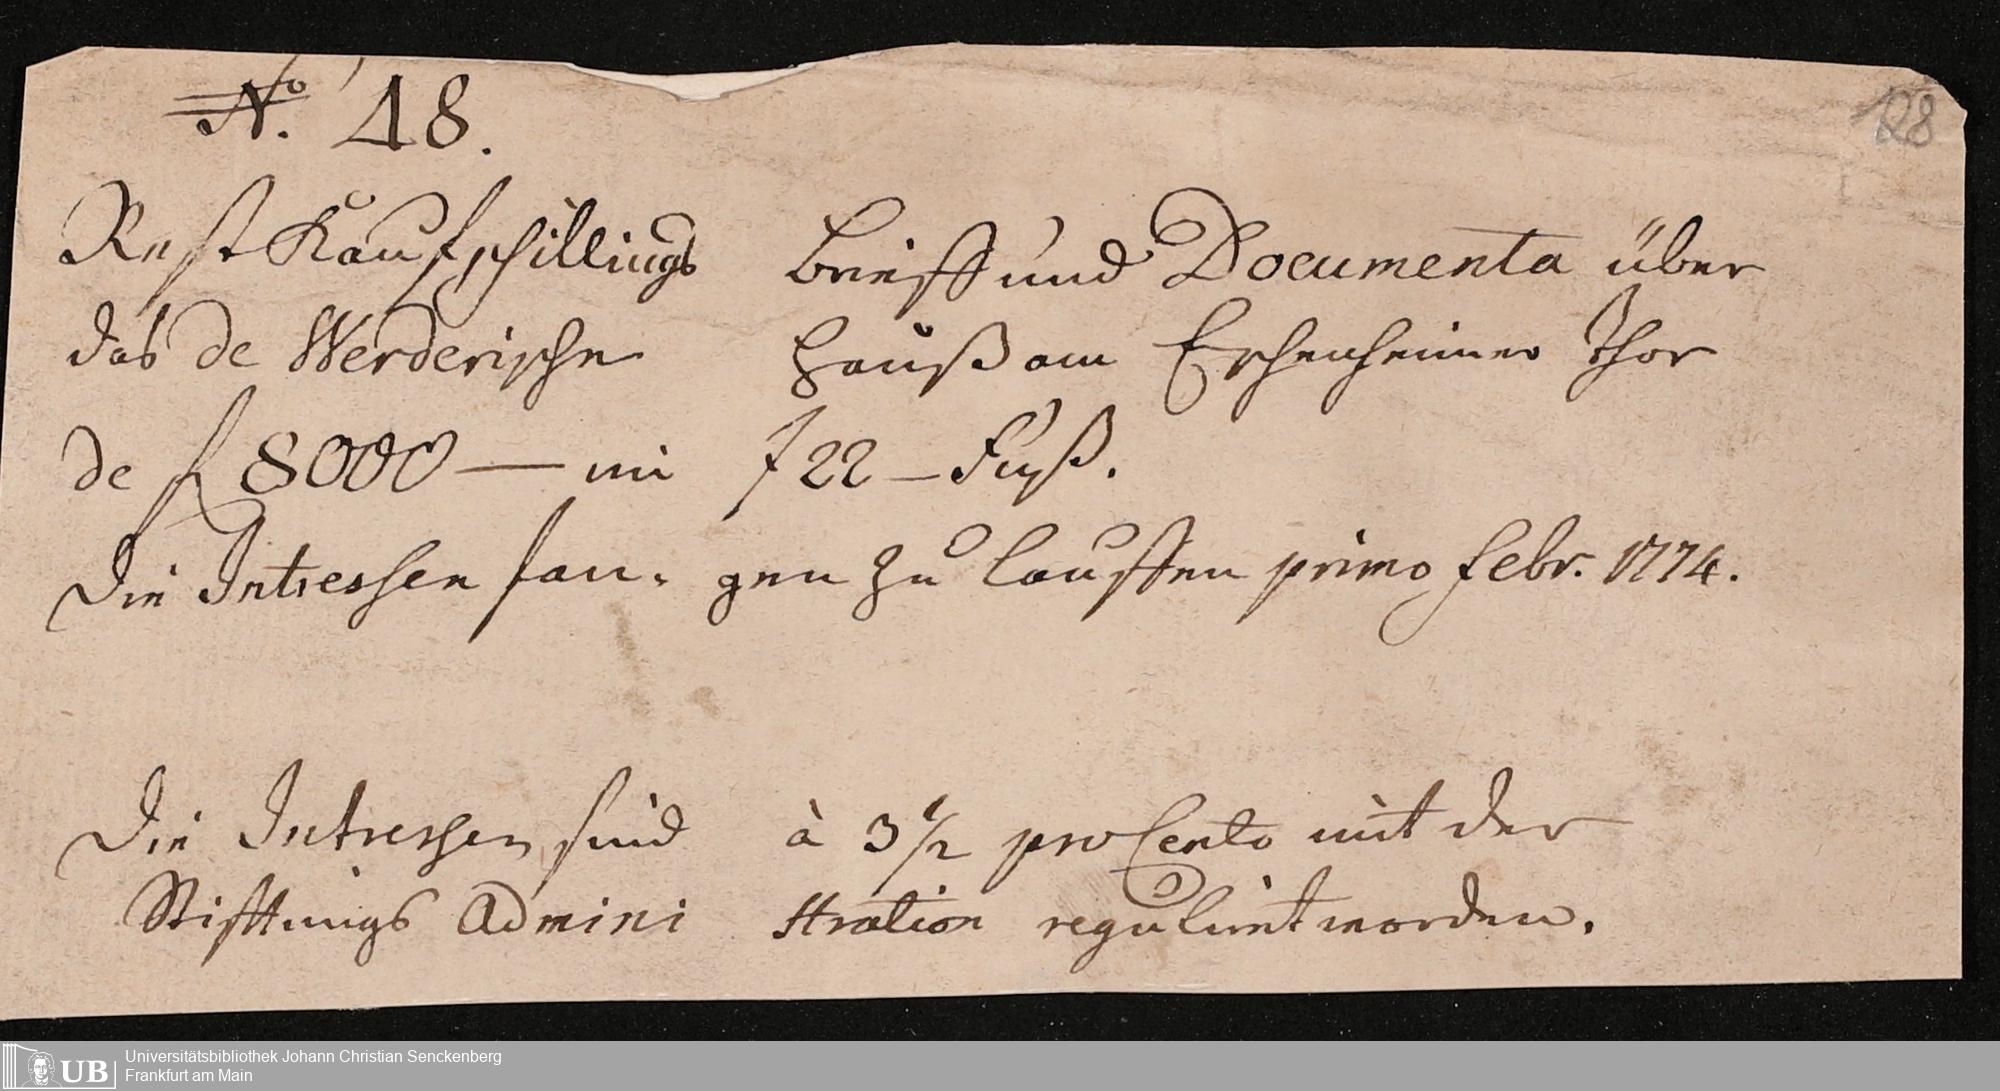 No. 48.
128
Rest Kaufschillings Brieff und Documenta über
das de Werderische Hauß am Eschenheimer Thor
de f 8000 — im f 22 — Fuß.
Die Intressen fan- gen zu lauffen primo Febr. 1774.
Die Intressen sind à 3 1/2 pro Cento mit der
Stifftungs Admini stration regulirt worden.
UB
Universitätsbibliothek Johann Christian Senckenberg
Frankfurt am Main